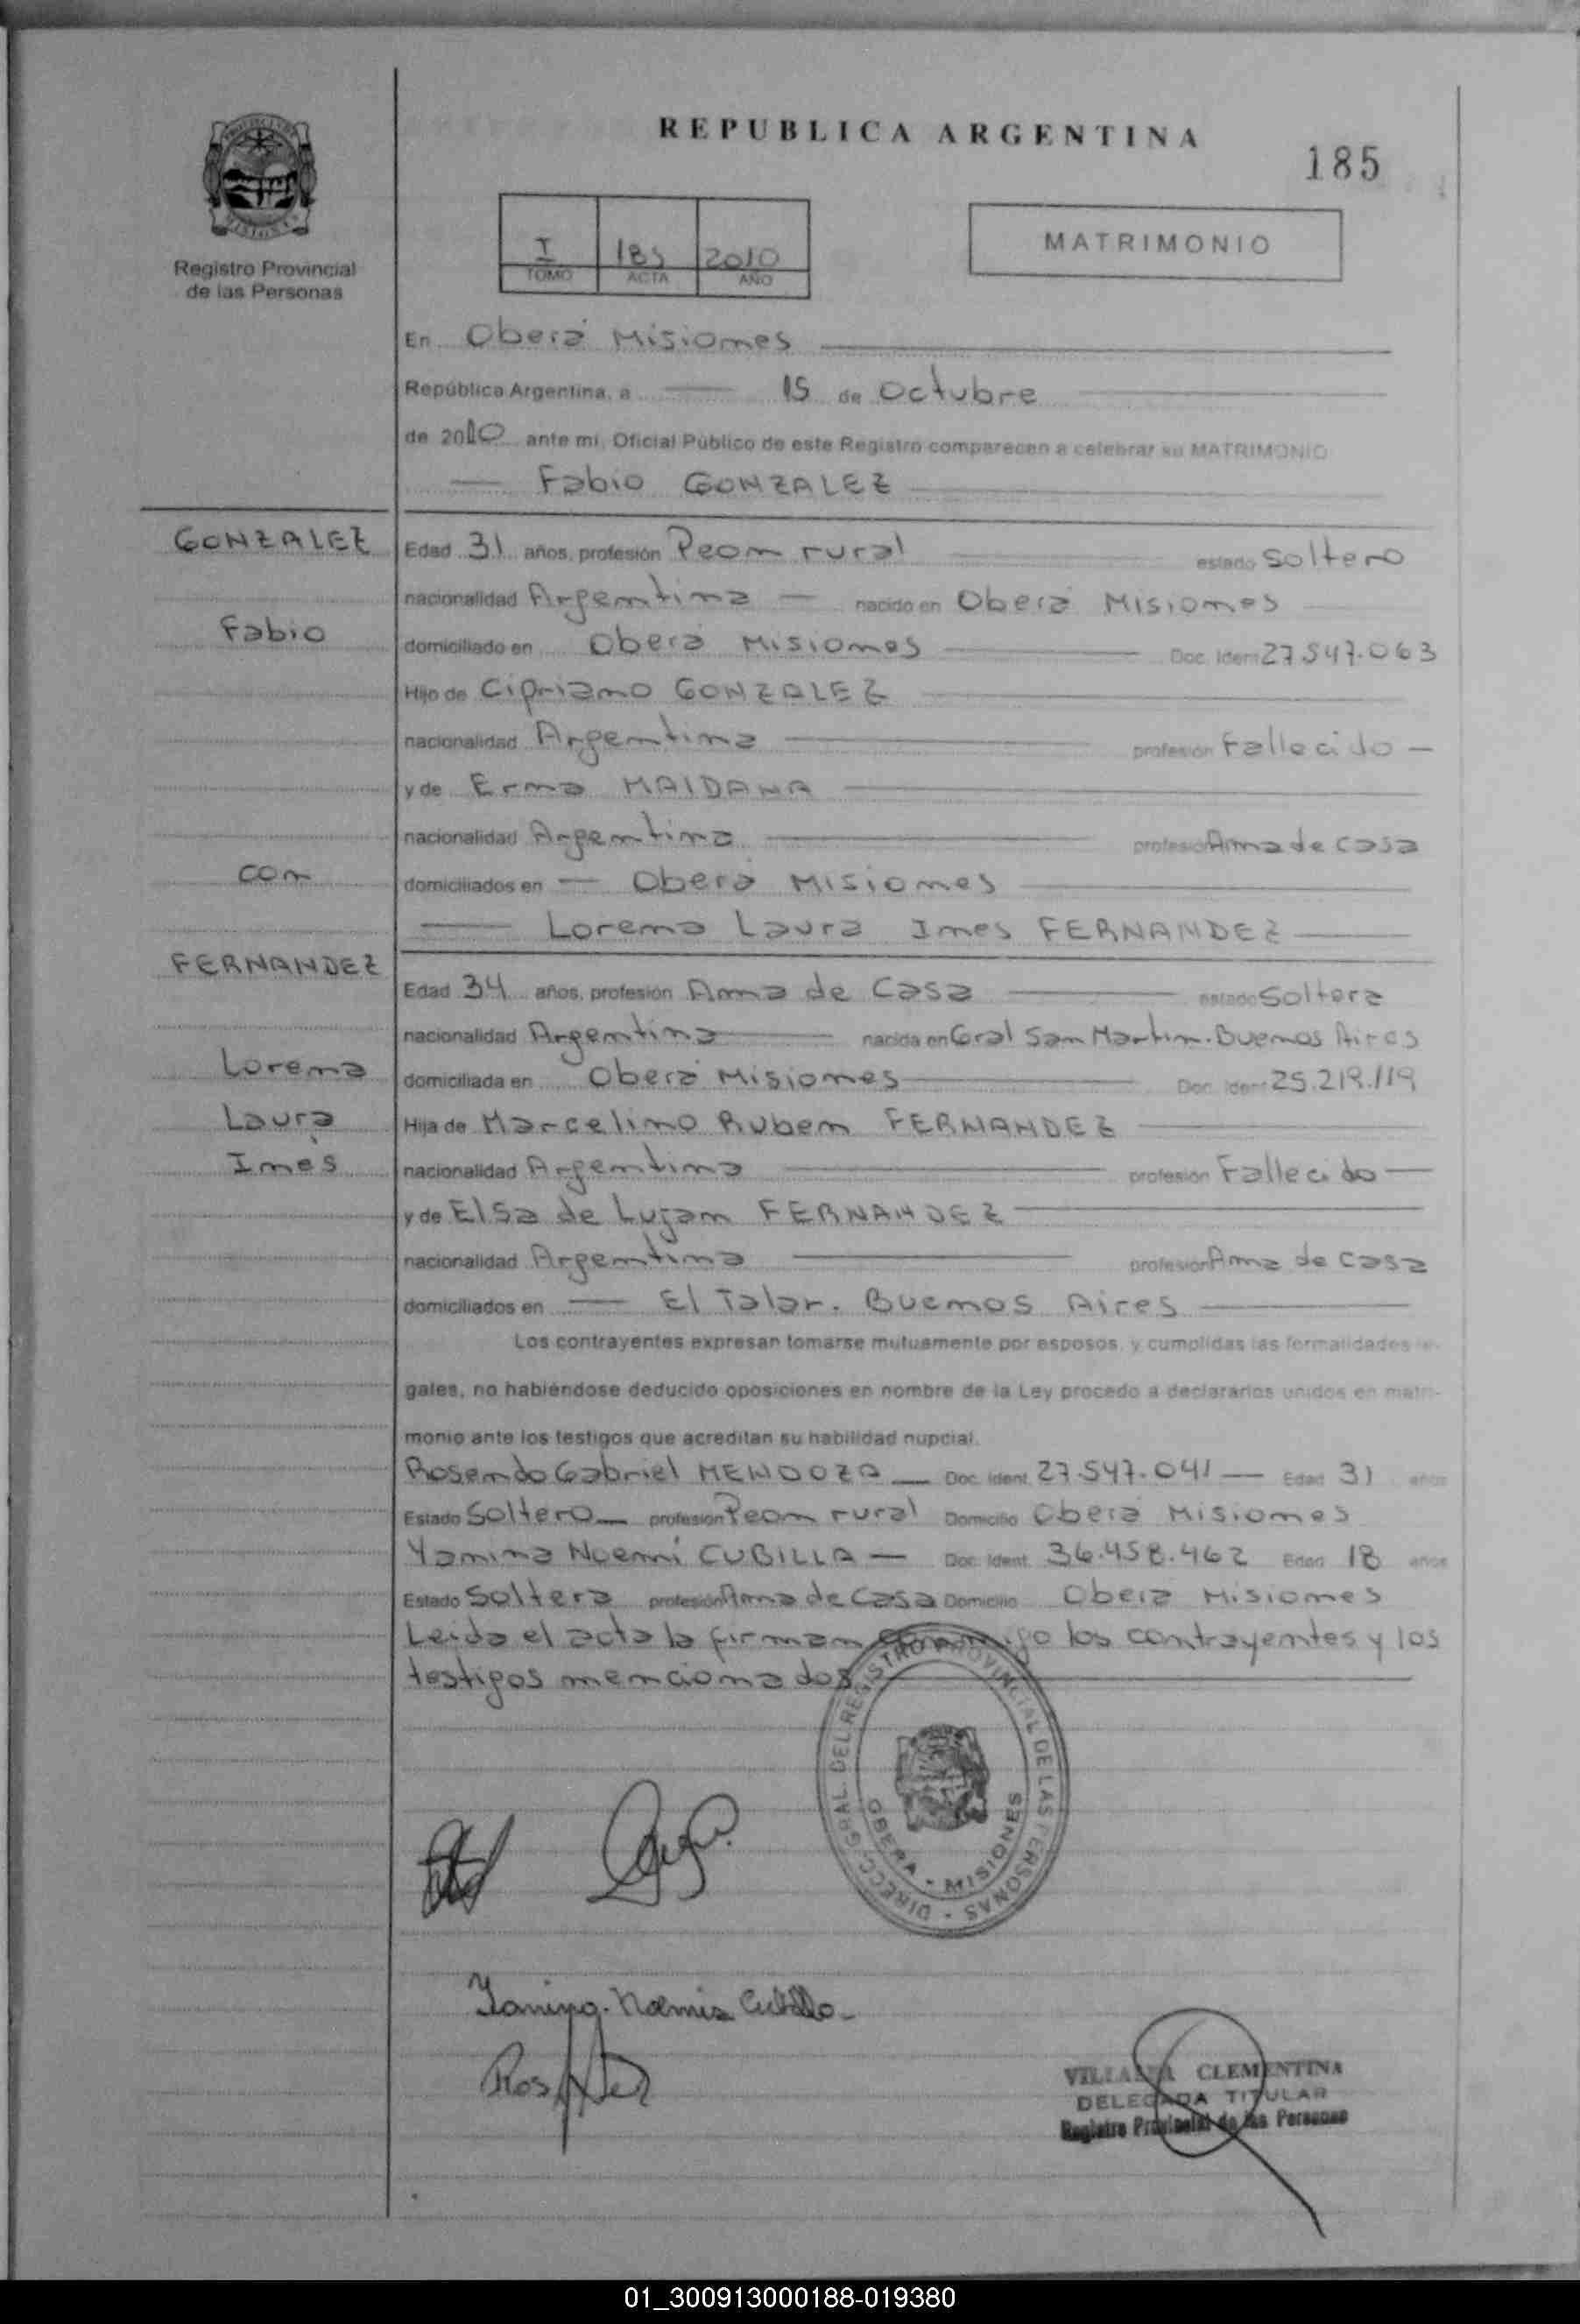 REPUBLICA ARGENTINA
185
Registro Provincial
de las Personas
I 185 2010
TOMO ACTA AÑO
MATRIMONIO
En Oberá Misiones
República Argentina, a 15 de Octubre
de 2010 ante mi, Oficial Público de este Registro comparecen a celebrar su MATRIMONIO
Fabio GONZALEZ
GONZALEZ
Fabio
con
FERNANDEZ
Lorena
Laura
Ines
Edad 31 años, profesión Peon rural estado Soltero
nacionalidad Argentina nacido en Oberá Misiones
domiciliado en Oberá Misiones Doc. Ident 27.547.063
Hijo de Cipriano GONZALEZ
nacionalidad Argentina profesión Fallecido
y de Erma MAIDANA
nacionalidad Argentina profesión Ama de casa
domiciliados en Oberá Misiones
Lorena Laura Ines FERNANDEZ
Edad 34 años, profesión Ama de Casa estado Soltera
nacionalidad Argentina nacida en Gral San Martin. Buenos Aires
domiciliada en Oberá Misiones Doc. Ident 25.219.119
Hija de Marcelino Ruben FERNANDEZ
nacionalidad Argentina profesión Fallecido
y de Elsa de Lujan FERNANDEZ
nacionalidad Argentina profesión Ama de casa
domiciliados en El Talar. Buenos Aires
Los contrayentes expresan tomarse mutuamente por esposos, y cumplidas las formalidades le-
gales, no habiéndose deducido oposiciones en nombre de la Ley procedo a declararlos unidos en matri-
monio ante los testigos que acreditan su habilidad nupcial.
Rosendo Gabriel MENDOZA Doc. Ident. 27.547.041 Edad 31 años
Estado Soltero profesión Peon rural Domicilio Oberá Misiones
Yamina Noemi CUBILLA Doc. Ident. 36.458.462 Edad 18 años
Estado Soltera profesión Ama de Casa Domicilio Oberá Misiones
Leida el acta la firman conmigo los contrayentes y los
testigos mencionados
DIRECC. GRAL. DEL REGISTRO PROVINCIAL DE LAS PERSONAS
OBERA - MISIONES
CLEMENTINA
DELEGADA TITULAR
Registro Provincial de las Personas
01_300913000188-019380